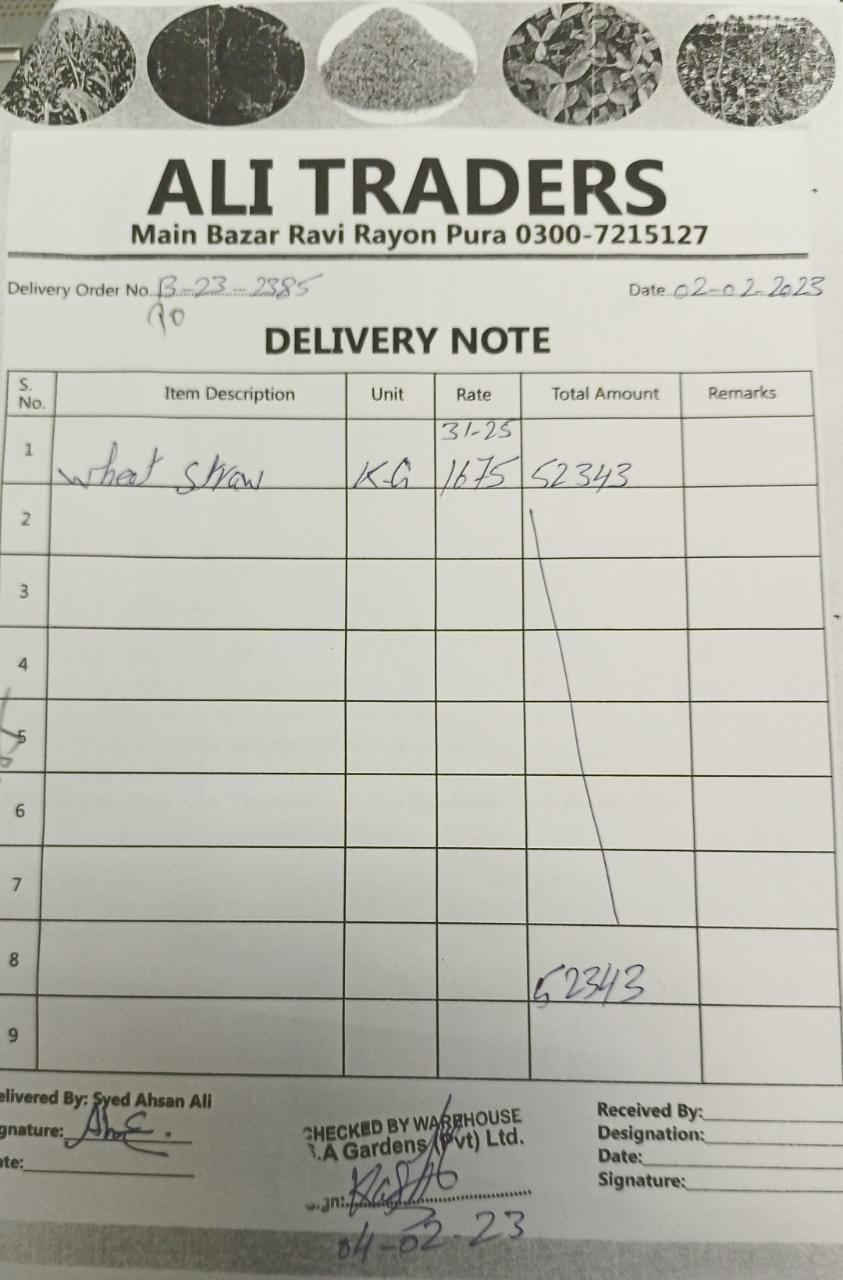 ALI TRADERS
Main Bazar Ravi Rayon Pura 0300-7215127
Delivery Order No. B-23-2385 Date 02-02-2023
PO
DELIVERY NOTE
S. No. Item Description Unit Rate Total Amount Remarks
31-25
1 wheat straw K-G 1675 52343
2
3
4
5
6
7
8 52343
9
elivered By: Syed Ahsan Ali
gnature:
te:
CHECKED BY WAREHOUSE
.A Gardens (Pvt) Ltd.
gn:
04-02-23
Received By:
Designation:
Date:
Signature: